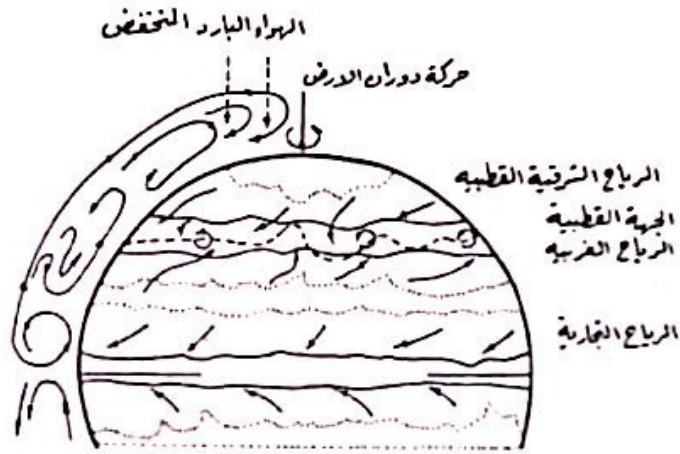 الهواء البارد المنخفض
حركة دوران الارض
الرياح الشرقية القطبيه
الجبهة القطبية
الرياح الغربيه
الرياح التجارية